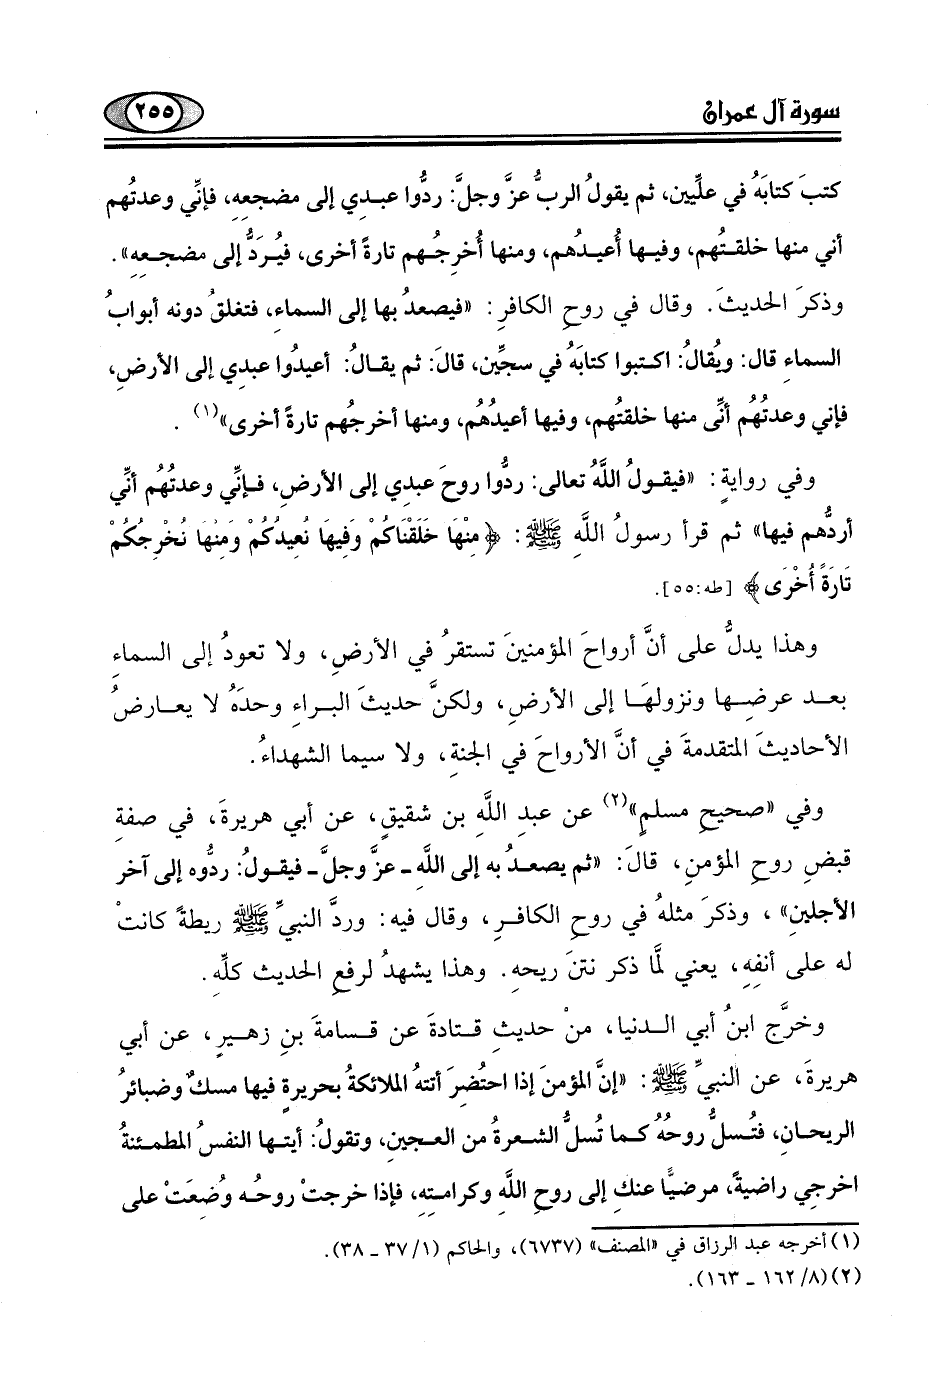 سورة آل عمران
٢٥٥
كتبَ كتابَهُ في علِّيين، ثم يقولُ الربُّ عزَّ وجلَّ: ردُّوا عبدي إلى مضجعِهِ، فإنِّي وعدتُهم
أني منها خلقتُهم، وفيها أُعيدُهم، ومنها أُخرجُهم تارةً أخرى، فيُرَدُّ إلى مضجعِهِ».
وذكرَ الحديثَ. وقال في روحِ الكافرِ: «فيصعدُ بها إلى السماءِ، فتغلقُ دونه أبوابُ
السماءِ قال: ويُقالُ: اكتبوا كتابَهُ في سجِّين، قالَ: ثم يقالُ: أعيدُوا عبدِي إلى الأرضِ،
فإني وعدتُهُم أنِّى منها خلقتُهم، وفيها أعيدُهُم، ومنها أخرجُهم تارةً أخرى»(١) .
وفي روايةٍ: «فيقولُ اللَّهُ تعالى: ردُّوا روحَ عبدِي إلى الأرضِ، فإنِّي وعدتُهُم أنِّي
أردُّهم فيها» ثم قرأ رسولُ اللَّهِ ﷺ: ﴿مِنْهَا خَلَقْنَاكُمْ وَفِيهَا نُعِيدُكُمْ وَمِنْهَا نُخْرِجُكُمْ
تَارَةً أُخْرَى﴾ [طه:٥٥].
وهذا يدلُّ على أنَّ أرواحَ المؤمنينَ تستقرُ في الأرضِ، ولا تعودُ إلى السماءِ
بعد عرضِها ونزولهَا إلى الأرضِ، ولكنَّ حديثَ البراءِ وحدَهُ لا يعارضُ
الأحاديثَ المتقدمةَ في أنَّ الأرواحَ في الجنةِ، ولا سيما الشهداءُ.
وفي «صحيحِ مسلمٍ»(٢) عن عبدِ اللَّهِ بن شقيقٍ، عن أبي هريرةَ، في صفةِ
قبضِ روحِ المؤمنِ، قالَ: «ثم يصعدُ به إلى اللَّهِ - عزَّ وجلَّ - فيقولُ: ردُّوه إلى آخر
الأجلين» ، وذكرَ مثلهُ في روحِ الكافرِ، وقال فيه: وردَّ النبيُّ ﷺ ريطةً كانتْ
له على أنفِهِ، يعني لمَّا ذكر نتنَ ريحهِ. وهذا يشهدُ لرفعِ الحديث كلِّه.
وخرَّج ابنُ أبي الدنيا، منْ حديثِ قتادةَ عن قسامةَ بنِ زهيرٍ، عن أبي
هريرةَ، عن النبيِّ ﷺ: «إنَّ المؤمنَ إذا احتُضرَ أتتهُ الملائكةُ بحريرةٍ فيها مسكٌ وضبائرُ
الريحانِ، فتُسلُّ روحُهُ كما تُسلُّ الشعرةُ من العجينِ، وتقولُ: أيتها النفسُ المطمئنةُ
اخرجي راضيةً، مرضيًّا عنكِ إلى روحِ اللَّهِ وكرامتِهِ، فإذا خرجتْ روحُه وُضعَتْ على
(١) أخرجه عبد الرزاق في «المصنف» (٦٧٣٧)، والحاكم (١/ ٣٧ - ٣٨).
(٢) (٨/ ١٦٢ - ١٦٣).